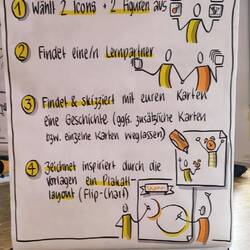 1 Wählt 2 Icons + 2 Figuren aus
2 Findet eine/n Lernpartner
3 Findet & skizziert mit euren Karten
eine Geschichte (ggfs. zusätzliche Karten
bzw. einzelne Karten weglassen)
4 Zeichnet inspiriert durch die
Vorlagen ein Plakat-
layout (Flip-Chart)